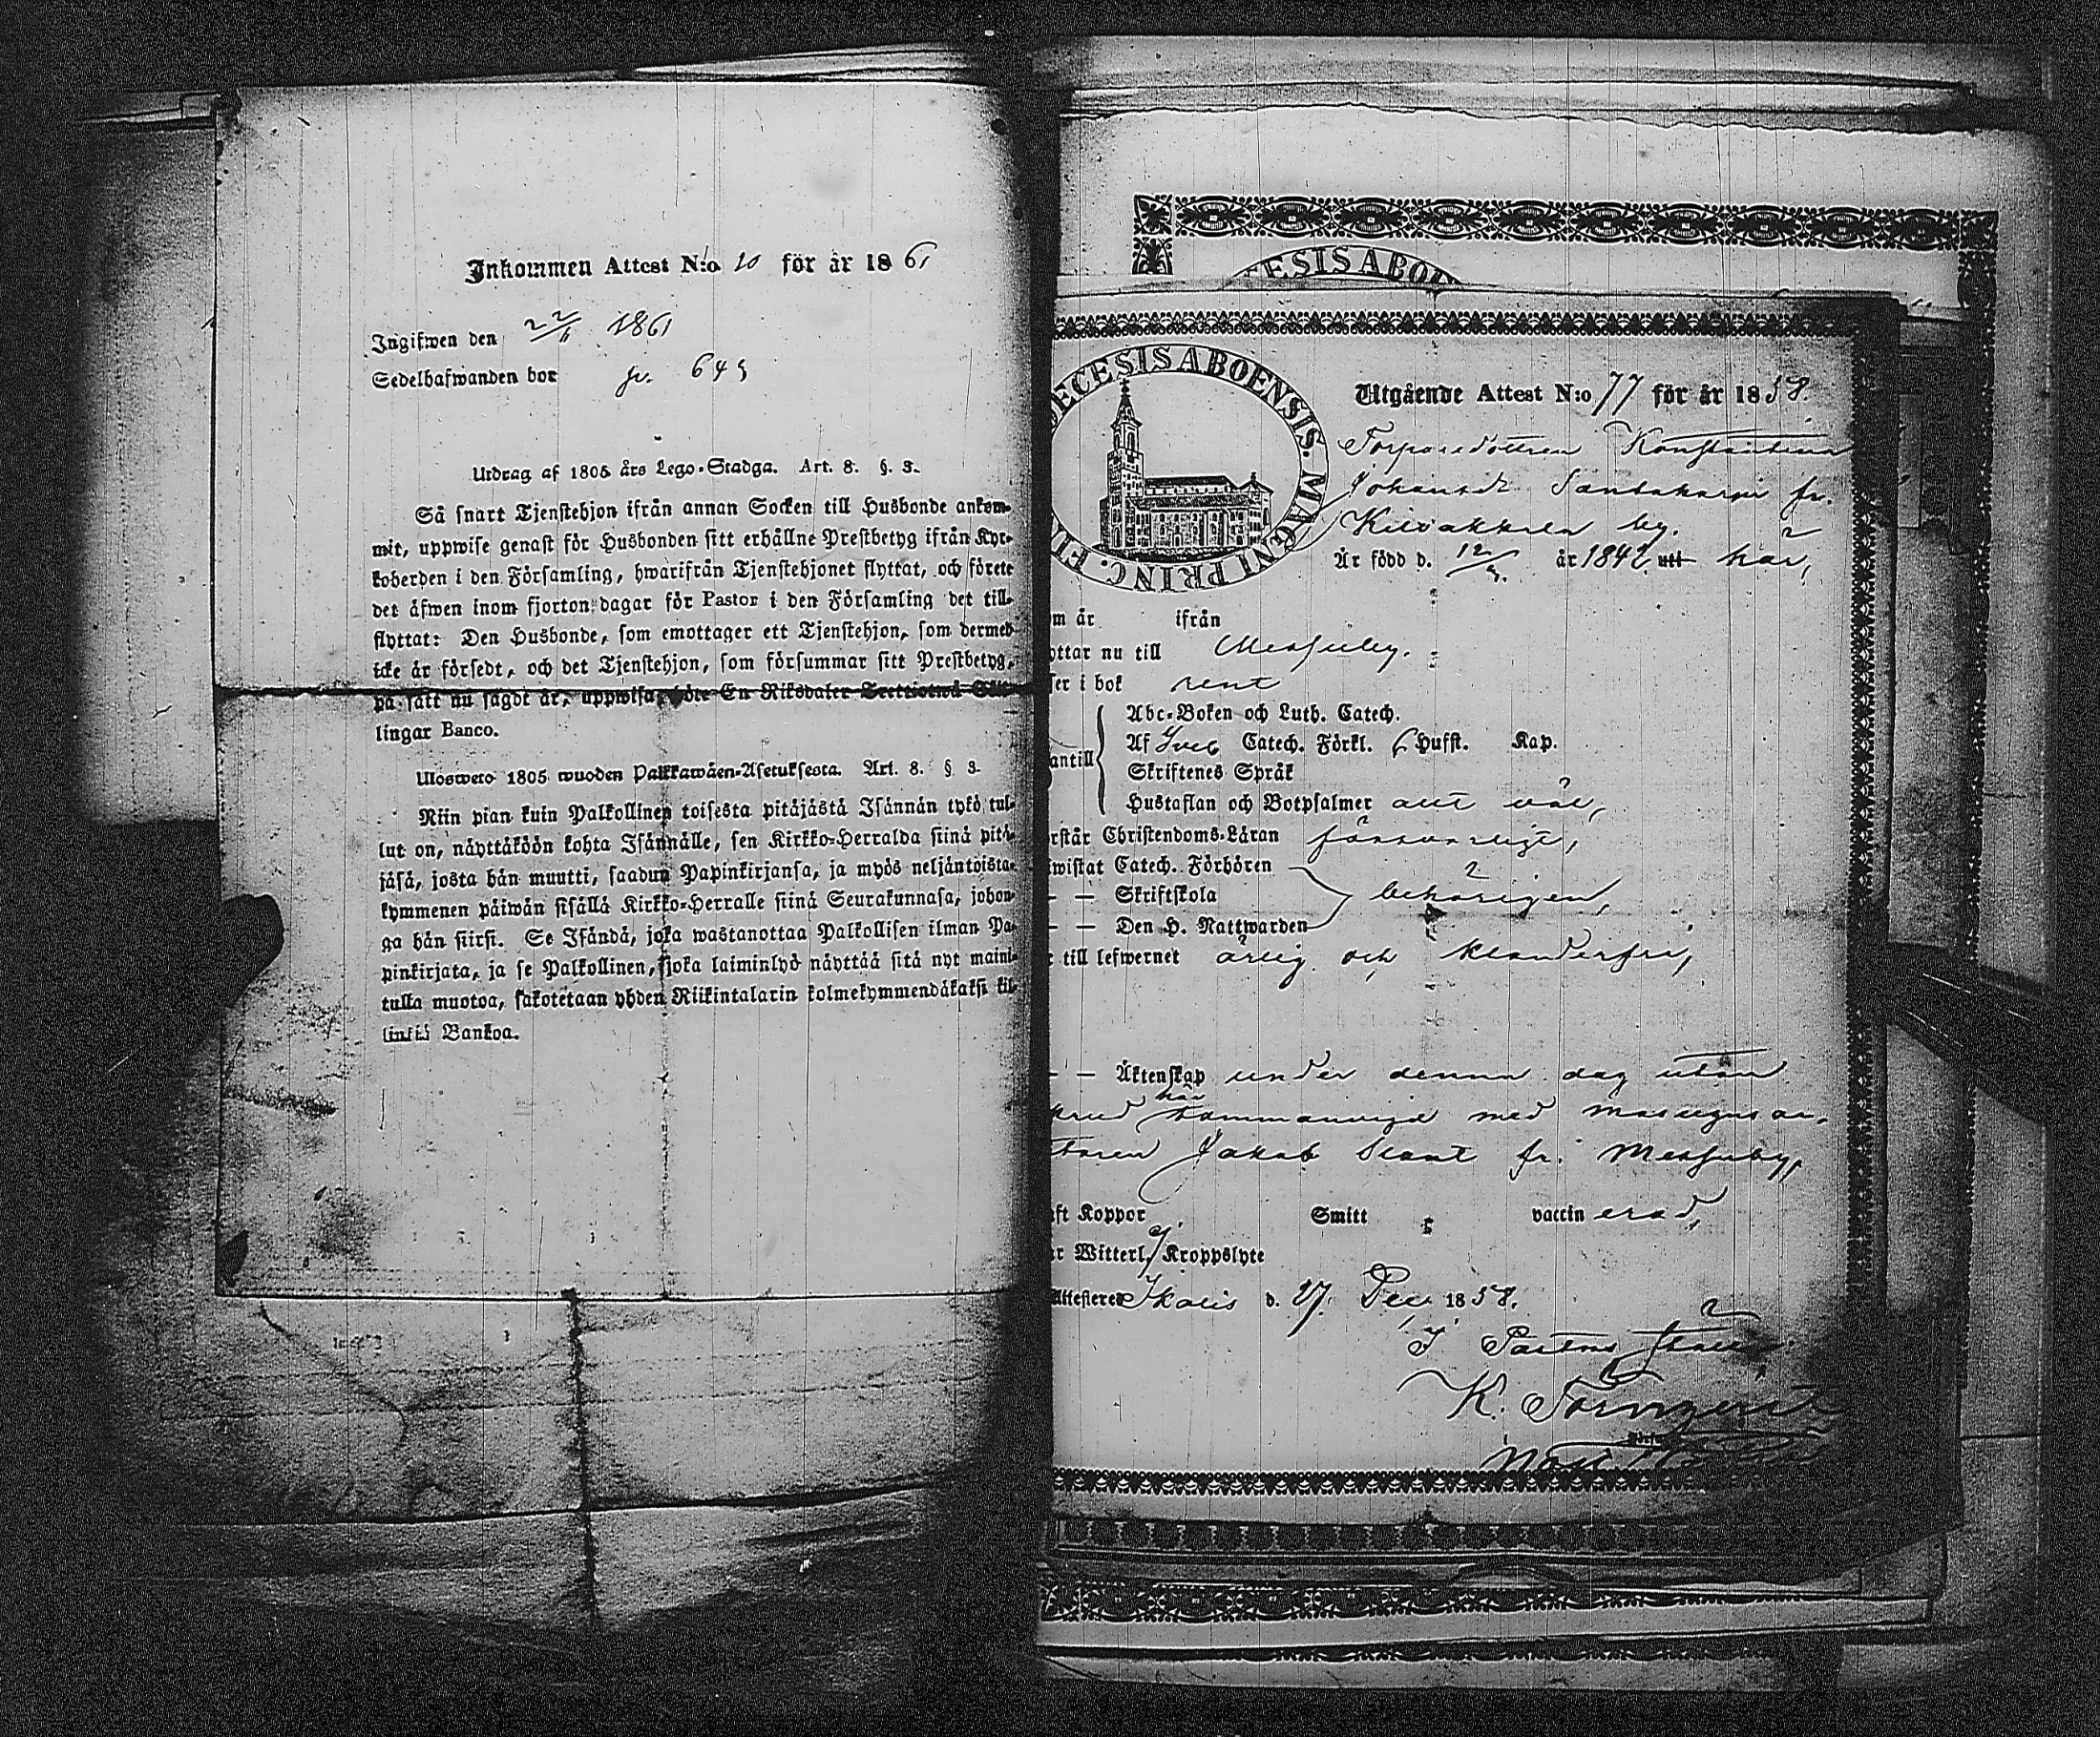 Inkommen Attest N:o 10 för år 1861
Ingifwen den 22/11 1861
Sedelhafwanden bor fr. 649
Utdrag af 1805 års Lego-Stadga. Art. 8. §. 3.
Så snart Tjenstehjon ifrån annan Socken till Husbonde ankom-
mit, uppwise genast för Husbonden sitt erhållne Prestbetyg ifrån Kyr-
koherden i den Församling, hwarifrån Tjenstehjonet flyttat, och förete
det äfwen inom fjorton dagar för Pastor i den Församling det till-
flyttat: Den Husbonde, som emottager ett Tjenstehjon, som dermed
icke är försedt, och det Tjenstehjon, som försummar sitt Prestbetyg,
på sätt nu sagdt är, uppwisa, böte En Riksdaler Trettiotwå Skil-
lingar Banco.
Ulosweto 1805 wuoden Palkkawäen-Asetuksesta. Art. 8. § 3.
Niin pian kuin Palkollinen toisesta pitäjästä Isännän tykö tul-
lut on, näyttäköön kohta Isännälle, sen Kirkko-Herralda siinä pitä-
jäsä, josta hän muutti, saadun Papinkirjansa, ja myös neljäntoista-
kymmenen päiwän sisällä Kirkko-Herralle siinä Seurakunnasa, johon-
ga hän siirsi. Se Isändä, joka wastanottaa Palkollisen ilman Pa-
pinkirjata, ja se Palkollinen, joka laiminlyö näyttää sitä nyt maini-
tulla muotoa, sakotetaan yhden Riikintalarin kolmekymmendäkaksi kil-
linkiä Bankoa.
ESIS ABO
DECESIS ABOENSIS. MAGNI PRINC. FI
Utgående Attest N:o 77 för år 1858.
Torparedottren Konstantina
Johansdr Sandaharju fr.
Kilvakkala by.
Är född d. 12/ år 1842 utt här,
m år ifrån
yttar nu till Messuby.
ser i bok rent
Abc-Boken och Luth. Catech.
Af Sveb Catech. Förkl. 6 Hufst. Kap.
antill Skriftenes Språk
Hustaflan och Botpsalmer allt väl,
rstår Christendoms-Läran försvarligt,
iwistat Catech. Förhören
— — Skriftskola behörigen,
— — Den H. Nattwarden
till lefwernet ärlig och klanderfri,
— — Äktenskap under denna dag utan
brud här sammanvigd med
Jakob fr. Messuby,
ft Koppor Smitt vaccin erad,
r Witterl. / Kroppslyte
Attesteres Ikalis d. 27. Dec. 1858.
I Pastors ställe
K. Törnqvist